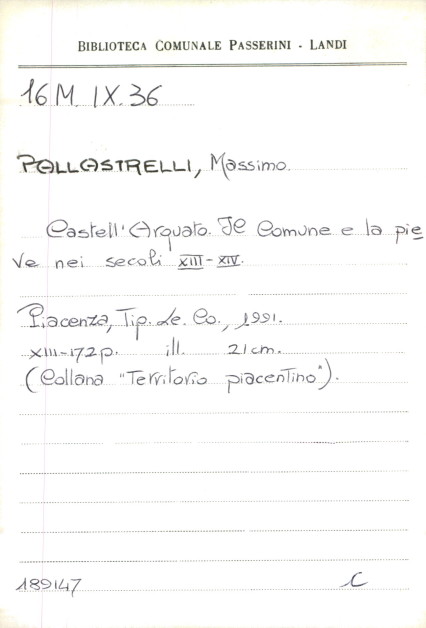 BIBLIOTECA COMUNALE PASSERINI - LANDI
16 M. IX. 36
PALLASTRELLI, Massimo.
Castell'Arquato. Il Comune e la pie
ve nei secoli XIII-XIV.
Piacenza, Tip. Le. Co., 1991.
XIII-172 p. ill. 21 cm.
(Collana "Territorio piacentino").
189147 C